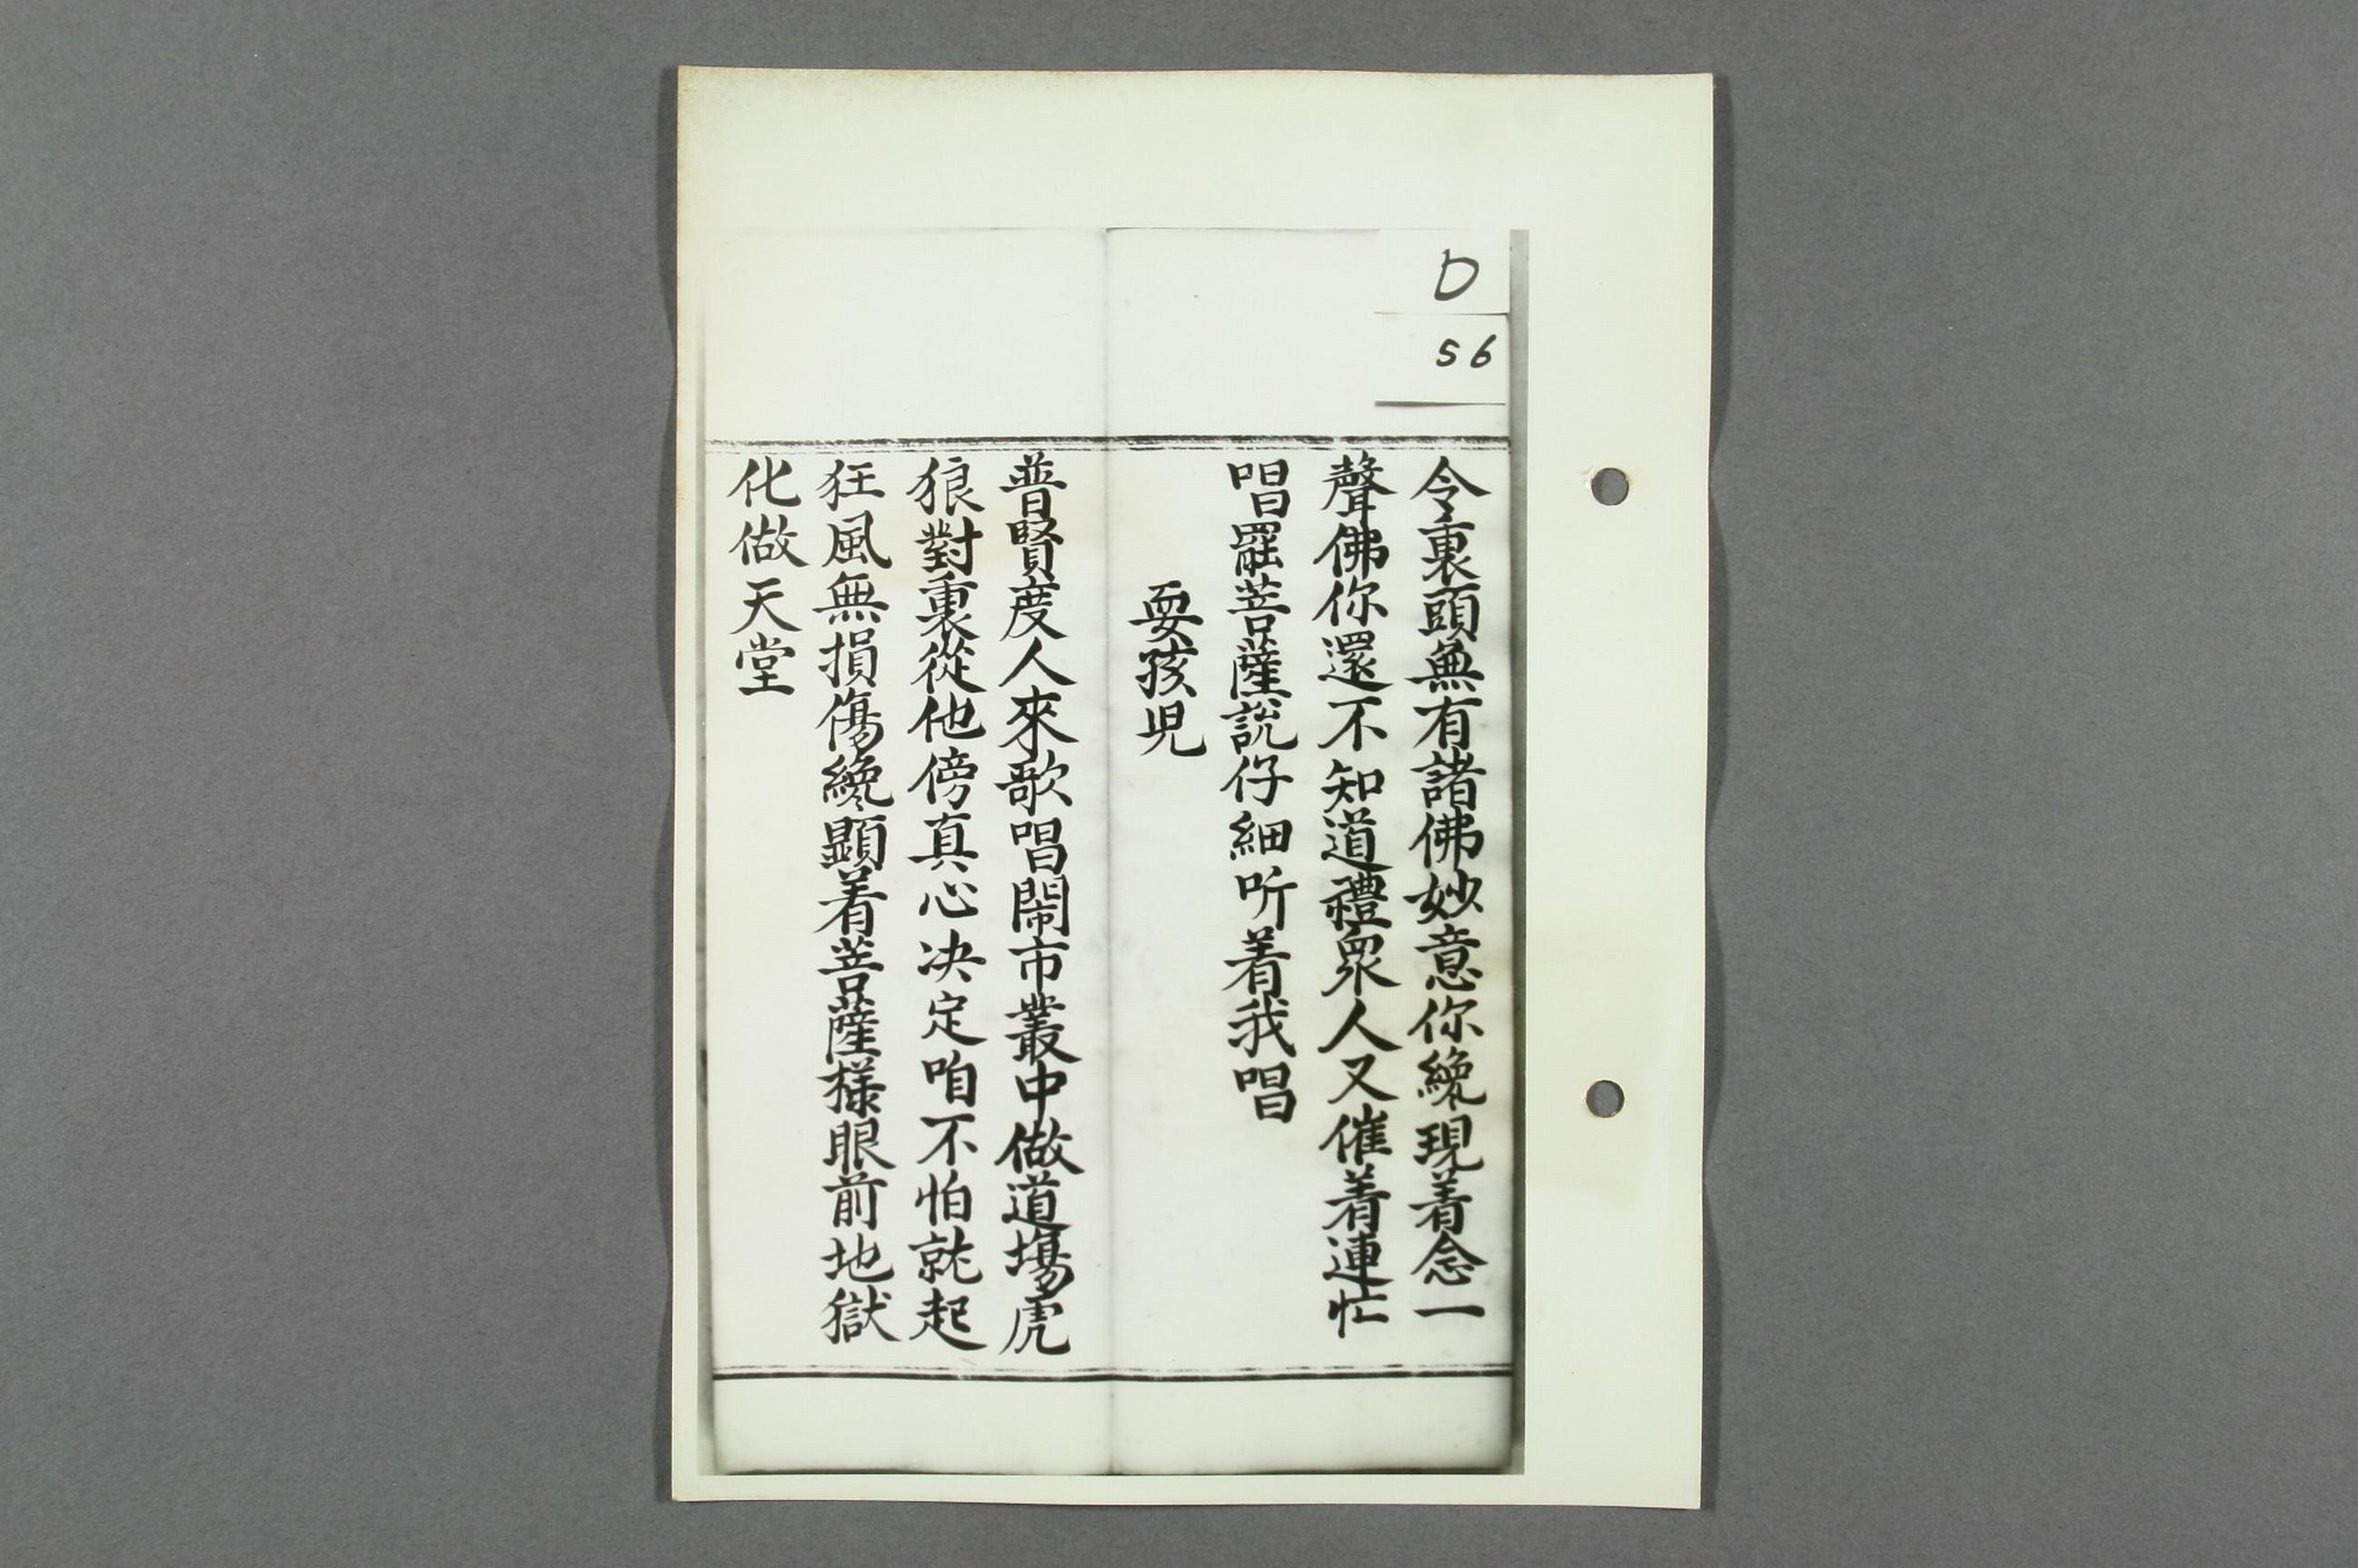 D
56
令裏頭無有諸佛妙意你纔現着念一
聲佛你還不知道禮衆人又催着連忙
唱罷菩薩說仔細听着我唱
耍孩児
普賢度人來歌唱鬧市叢中做道場虎
狼對裏從他傍真心决定咱不怕就起
狂風無損傷纔顯着菩薩樣眼前地獄
化做天堂